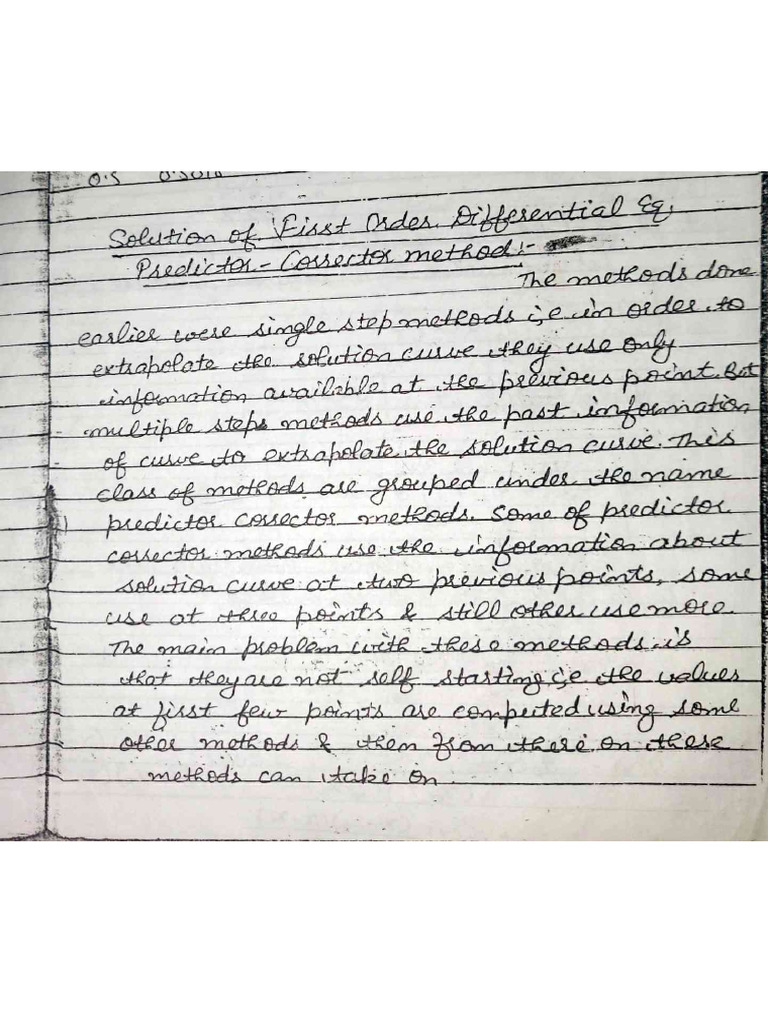 0.5 0.5018
Solution of First Order Differential Eq.
Predictor - Corrector method :-
The methods done
earlier were single step methods i.e in order to
extrapolate the solution curve they use only
information available at the previous point. But
multiple steps methods use the past information
of curve to extrapolate the solution curve. This
class of methods are grouped under the name
predictor corrector methods. Some of predictor
corrector methods use the information about
solution curve at two previous points, some
use at three points & still other use more.
The main problem with these methods is
that they are not self starting i.e the values
at first few points are computed using some
other methods & then from there on these
methods can take on.